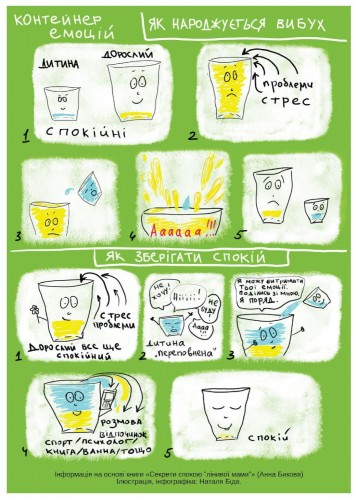 КОНТЕЙНЕР
ЕМОЦІЙ
ЯК НАРОДЖУЄТЬСЯ ВИБУХ
ДИТИНА
ДОРОСЛИЙ
1 СПОКІЙНІ
2
проблеми
СТРЕС
3
4
Аааааа!!!
5
ЯК ЗБЕРІГАТИ СПОКІЙ
1
стрес
проблеми
Дорослий все ще
спокійний
2
НЕ
ХОЧУ!
Ніііііі!
НЕ
БУДУ
Ааа
дитина
"переповнена"
3
Я можу витримати
твої емоції.
поділись зі мною,
я поряд.
4
РОЗМОВА
ВІДПОЧИНОК
СПОРТ/ПСИХОЛОГ/
КНИГА/ВАННА/ТОЩО
5
СПОКІЙ
Інформація на основі книги «Секрети спокою "лінивої мами"» (Анна Бикова)
Ілюстрація, інфографіка: Наталя Біда.